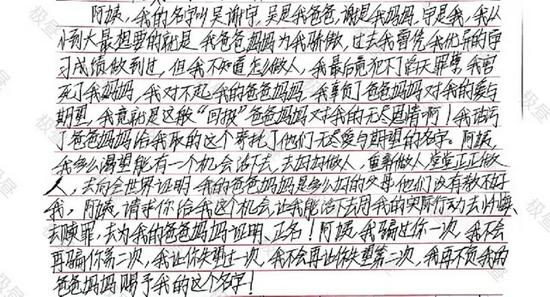 阿姨，我的名字叫吴谢宇，吴是我爸爸，谢是我妈妈，宇是我，我从
小到大最想要的就是我爸爸妈妈为我骄傲，过去我曾凭我优异的学
习成绩做到过，但我不知道怎么做人，我最后竟犯下滔天罪孽，我害
死了我妈妈，我对不起我的爸爸妈妈，我辜负了爸爸妈妈对我的爱与
期望，我竟就是这般“回报”爸爸妈妈对我的无尽恩情啊！我玷污
了爸爸妈妈给我取的这个寄托了他们无尽爱与期望的名字。阿姨，
我多么渴望能有一个机会活下去，去好好做人，重新做人，堂堂正正做
人，去向全世界证明，我的爸爸妈妈是多么好的父母，他们没有教不好
我，阿姨，请求你给我这个机会，让我能活下去用我的实际行动去忏悔
去赎罪，去为我的爸爸妈妈证明、正名！阿姨，我骗过你一次，我不会
再骗你第二次，我让你失望过一次，我不会再让你失望第二次，我再不负我的
爸爸妈妈赐予我的这个名字！
极昼